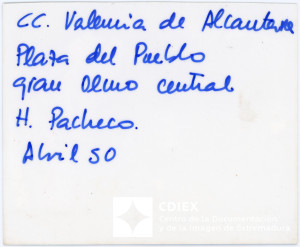 CC. Valencia de Alcantara
Plaza del Pueblo
gran Olmo central
H. Pacheco.
Abril 50
CDIEX
Centro de la Documentación
y de la Imagen de Extremadura